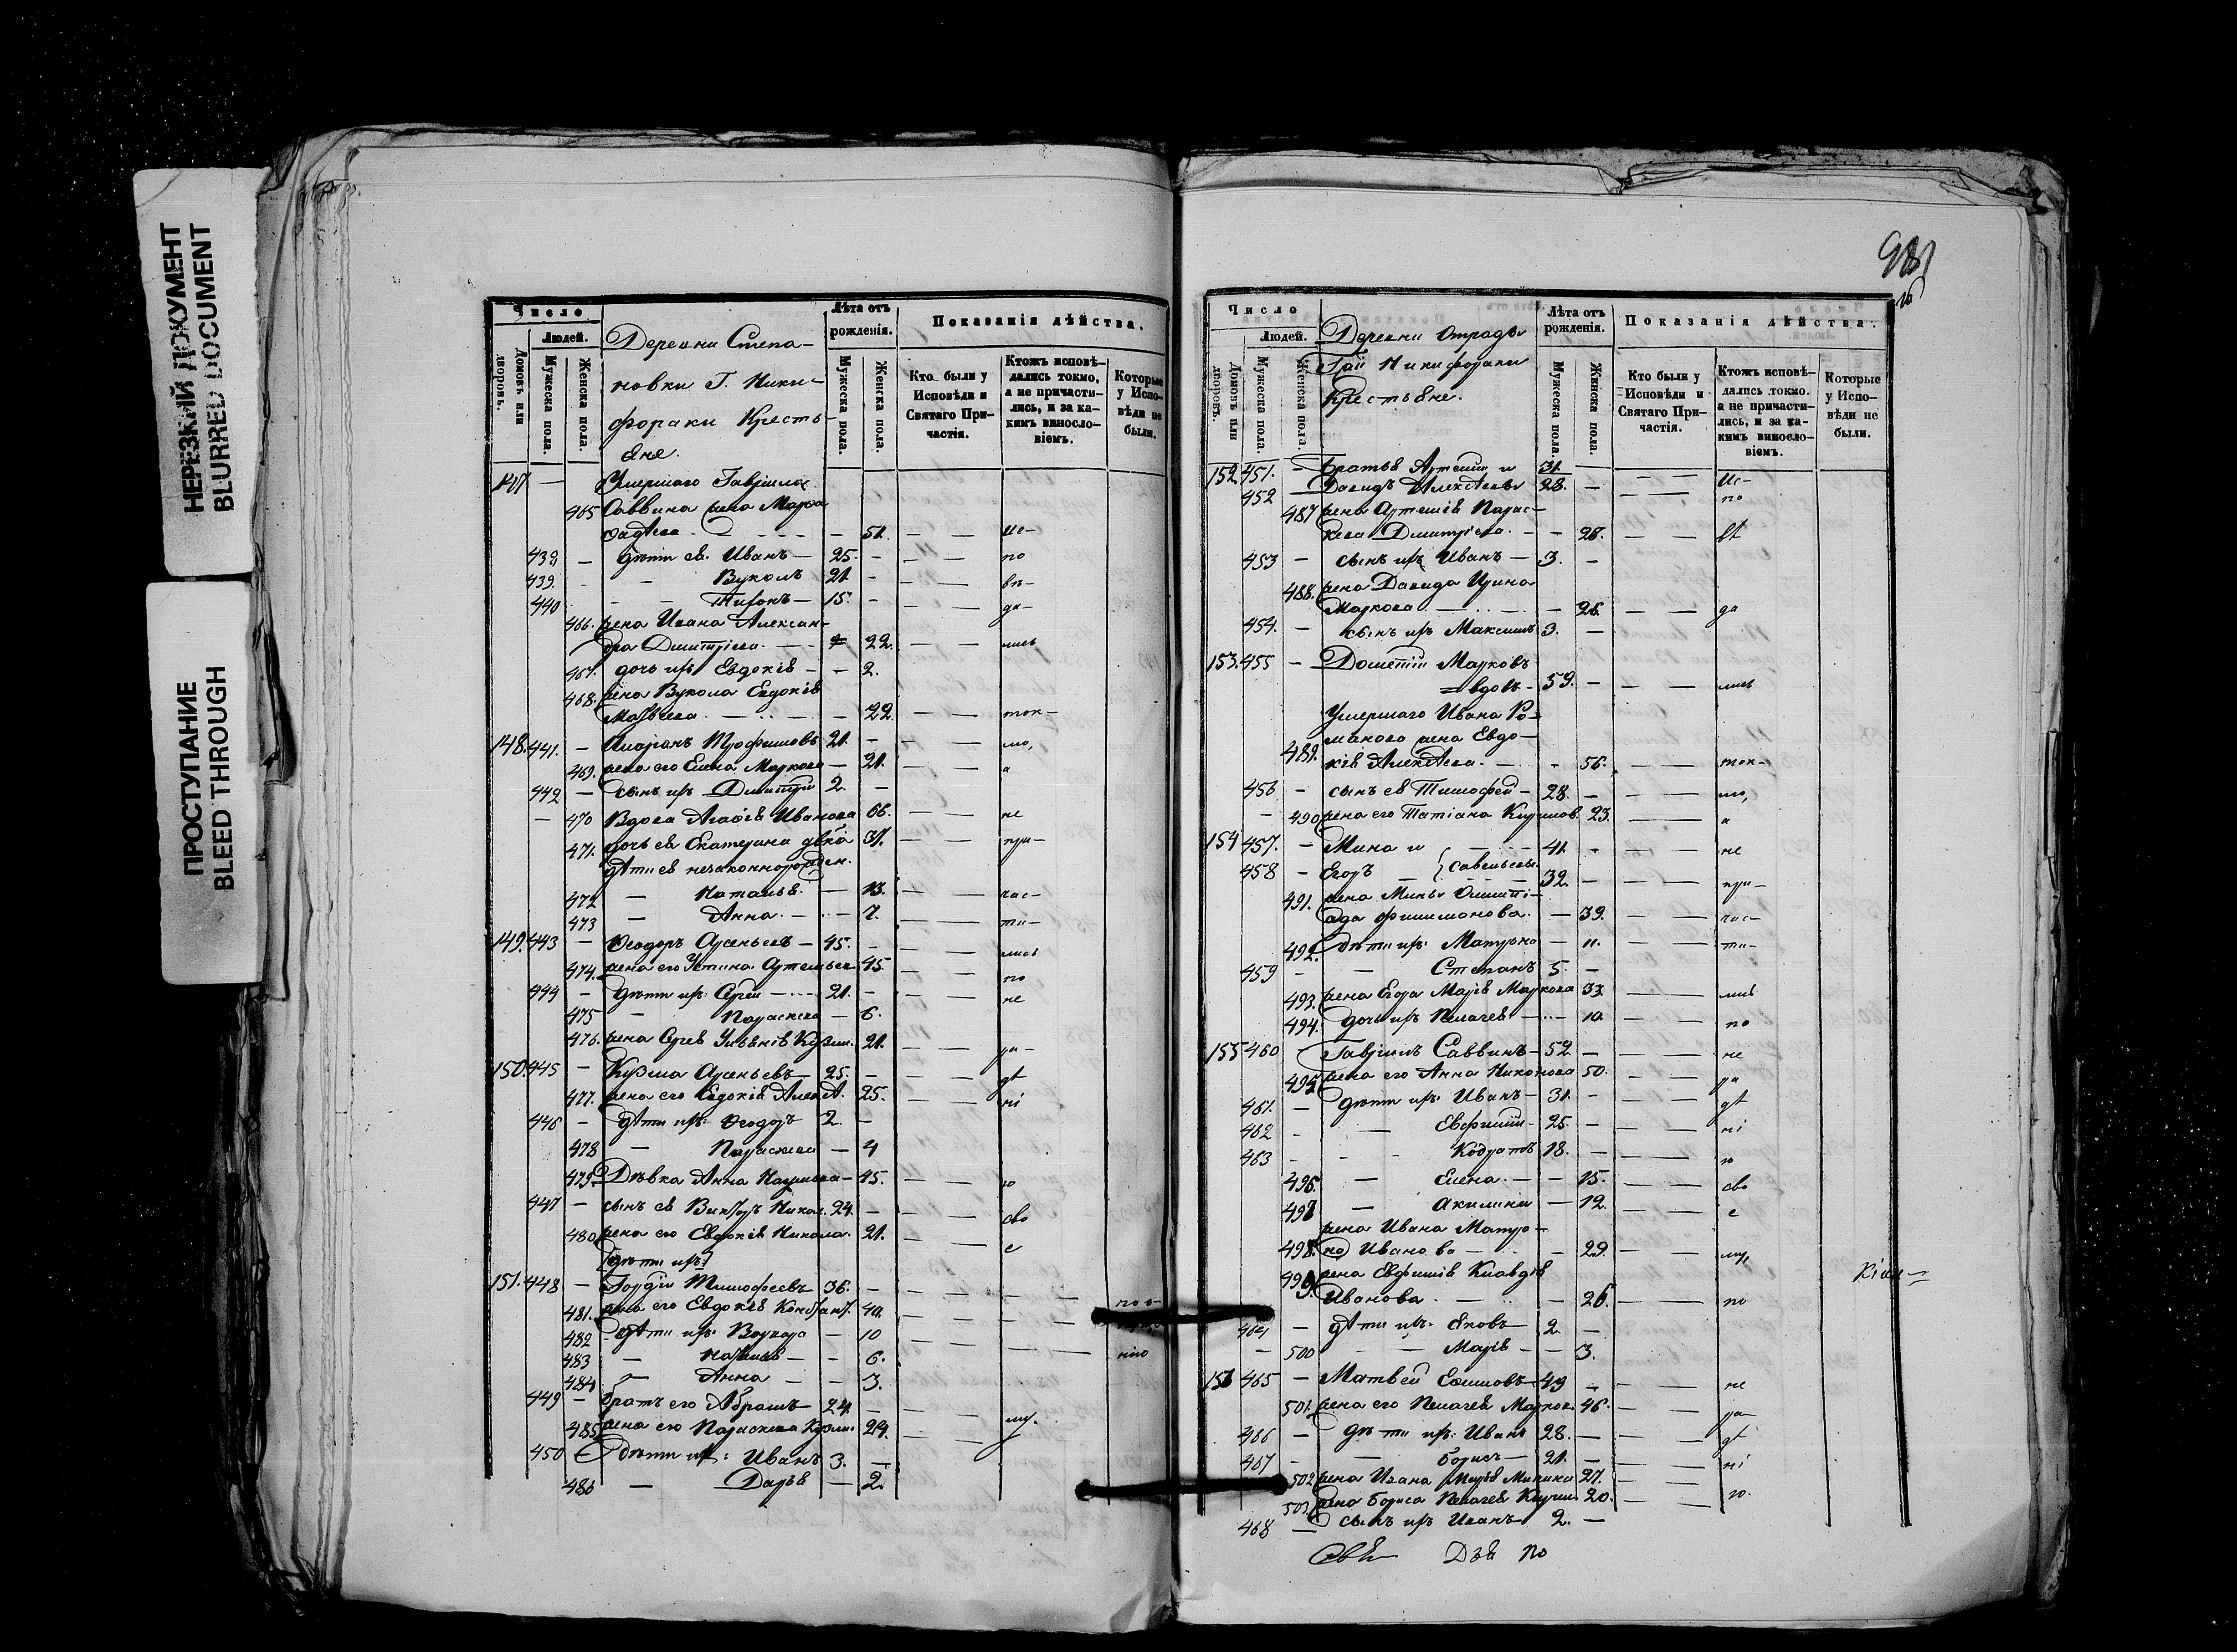 НЕРЕЗКИЙ ДОКУМЕНТ
BLURRED DOCUMENT
ПРОСТУПАНИЕ
BLEED THROUGH
Число
Людей.
Домовъ или дворовъ.
Мужеска пола.
Женска пола.
Деревни Степа-
новки Г. Ники-
фораки Кресть-
яне.
Лѣта отъ рожденія.
Мужеска пола.
Женска пола.
Показанія дѣйства.
Кто были у Исповѣди и Святаго Причастія.
Ктожъ исповѣдались токмо, а не причастились, и за какимъ винословіемъ.
Которые у Исповѣди не были.
147 — Умершаго Гавріила
465 Саввина жена Марѳа
Фадѣева — 51. — — ис-
438 — дѣти ея: Иванъ — 25. — — по
439. — Вуколъ 21. — — — вѣ-
440 — Тихонъ — 15. — — — да-
466. жена Ивана Алексан-
дра Дмитріева — 22. — — лись
467. дочь ихъ Евдокія — — 2.
468. жена Вукола Евдокія
Матвеева — — 22. — — ток-
148. 441. — Иларіонъ Трофимовъ 21. — — — мо,
469. жена его Елена Маркова — 21. — — а
442 — сынъ ихъ Димитрій 2. —
— 470 Вдова Агафія Иванова 66. — — не
471. дочь ея Екатерина дѣвка 37. — — при-
дѣти ея незаконнорожден.
472 — Наталья — 13. — — час-
473 — Анна — 7. — — ти-
149. 443 — Ѳеодоръ Арсеньевъ — 45. — — — лись
474. жена его Устина Артемьев. 45. — — по
444 — дѣти ихъ: Сергій — 21. — — — не
475 — Параскева — 6.
476. жена Сергея Ульянія Кузми. 21. — — ра-
150. 445 — Кузма Арсеньевъ — 25. — — — дѣ
477. жена его Евдокія Алексѣ. 25. — — ні
446 — дѣти ихъ: Ѳеодоръ 2. —
478 — Параскева — 4
479. Дѣвка Анна — 45. — — ю
447 — сынъ ея Викторъ Никол. 24. — — — сво
480 жена его Евдокія Никола. 21. — — е
(дѣти ихъ)
151. 448 — Гордій Тимофеевъ 36. — — —
481. жена его Евдокія Констант. 40. — —
482 — дѣти ихъ: Варвара — 10
483 — — 6.
484 — Анна — — 3.
449 — братъ его Абрамъ — 24. — — — му.
485 жена его Параскева Кузми. 24. — —
450 дѣти их: Иванъ 3. —
486 — Дарья — 2.
Число
Людей.
Домовъ или дворовъ.
Мужеска пола.
Женска пола.
Деревни Отрады
Гжи Никифораки
Крестьяне.
Лѣта отъ рожденія.
Мужеска пола.
Женска пола.
Показанія дѣйства.
Кто были у Исповѣди и Святаго Причастія.
Ктожъ исповѣдались токмо, а не причастились, и за какимъ винословіемъ.
Которые у Исповѣди не были.
152 451. — Братья Артемій и 31. — — — Ис-
452 Давидъ Алексѣевы 28. — — — по
487 жена Артемія Парас-
кева Дмитріева — — 28. — — вѣ
453 — сынъ ихъ Иванъ — 3. —
488. жена Давида Ирина
Маркова — — 26. — — да
454. — сынъ ихъ Максимъ 3. —
153. 455 — Дометій Марковъ
вдовъ — 59. — — — лись
Умершаго Ивана Ро-
манова жена Евдо-
489. кія Алексѣева — — 56. — — ток-
456 — сынъ ея Тимофей — 28. — — — мо,
— 490 жена его Татіана Кирилов. 23. — — а
154 457. — Мина и — 41. — — — не
458 — Егоръ } Савельевы 32. — — — при-
491. жена Мины Олимпі-
ада Филимонова — 39. — — час-
492. дѣти ихъ: Матрона — 11. — — ти-
459 — Степанъ 5. —
493. жена Егора Марія Маркова 33 — — лись
494. дочь ихъ Пелагея — 10. — — по
155 460 Гавріилъ Саввинъ — 52 — — — не
495 жена его Анна Никонова 50. — — ра
461. — дѣти ихъ: Иванъ — 31. — — — дѣ
462 — Евфимій — 25. — — — ні
463 — Кодратъ 18. — — — ю
496. — Елена — — 15. — — сво
497 — Акилина — 12. — — е
жена Ивана Матро-
498. на Иванова — — 29. — — му,
499 жена Евфимія Клавдія
Иванова — 26. — — по
464 — дѣти ихъ: Яковъ 2. —
— 500 — Марія — — 3.
156 465 — Матвей Ефимовъ — 49 — — — не
501. жена его Пелагея Марков. 46. — — ра-
466 — дѣти ихъ: Иванъ 28. — — — дѣ
467 — Борисъ — 21. — — — ні
502 жена Ивана Марія Минина 27. — —
503. жена Бориса Пелагея 20. — — ю.
468 — сынъ ихъ Иванъ 2. —